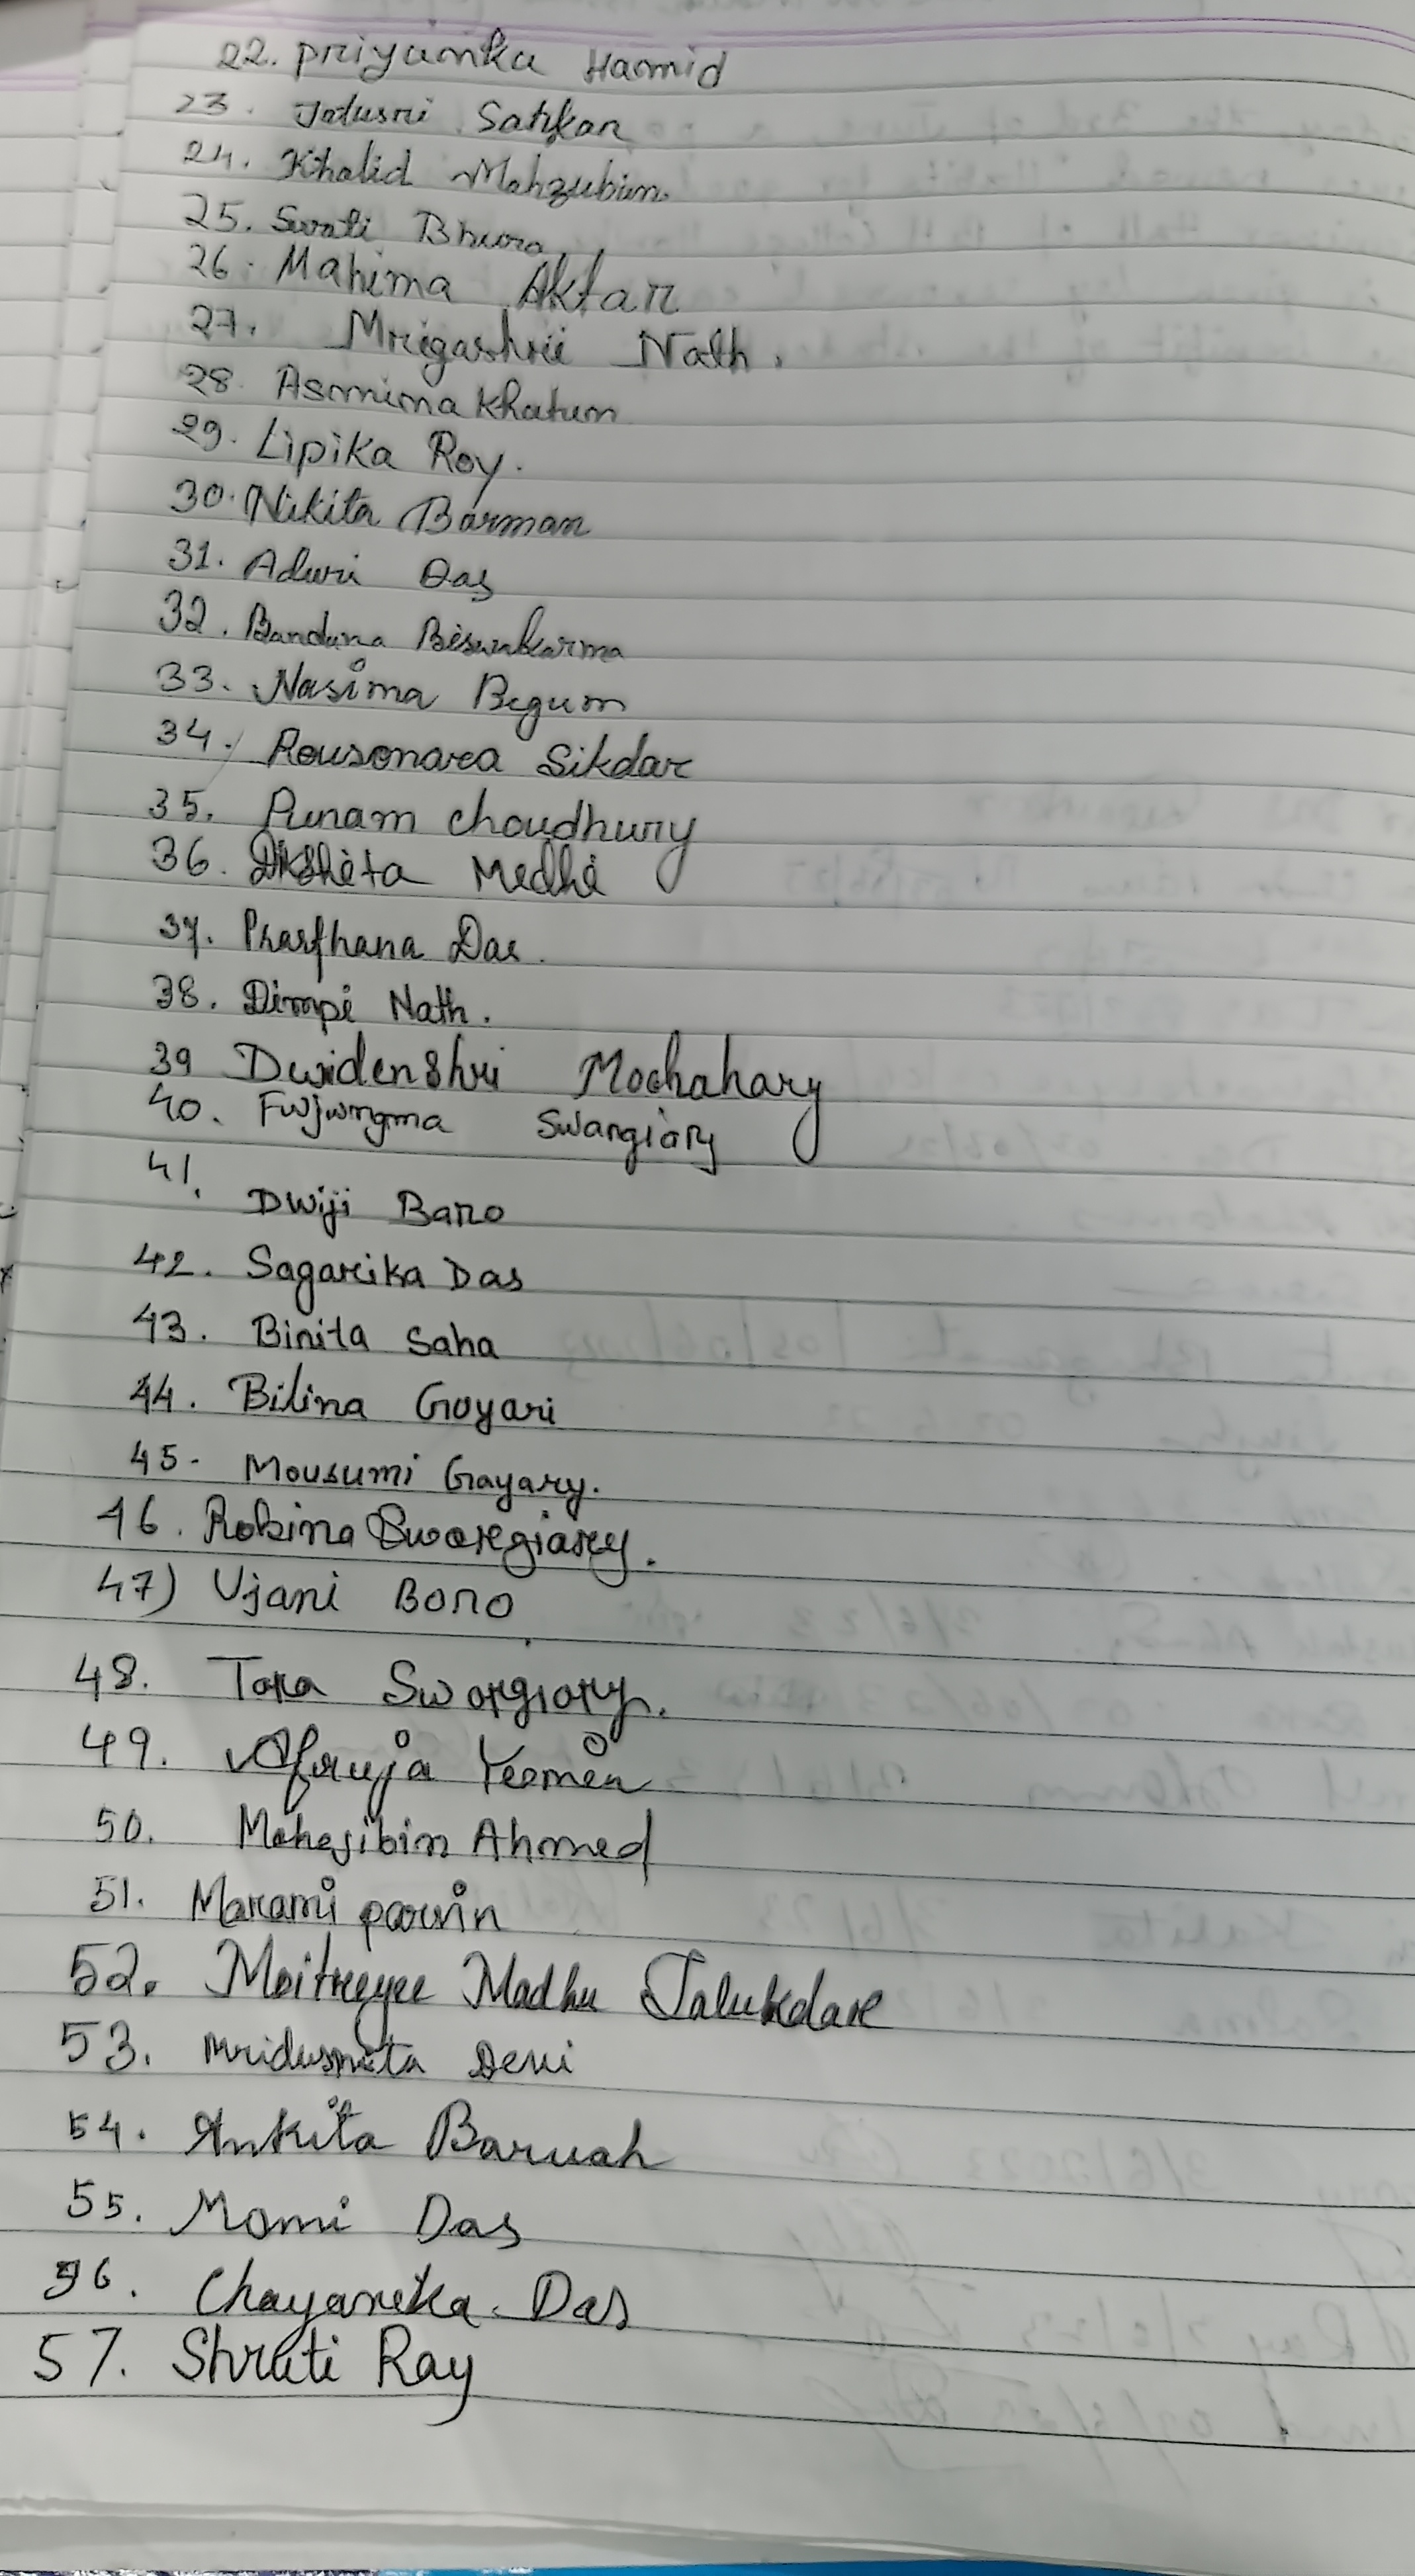 22. Priyanka Hamid
23. Jatusri Sarkar
24. Khalid Mahzubin
25. Swati Bhuro
26. Mahima Aktar
27. Mrigashrii Nath.
28. Asmima Khatun
29. Lipika Roy.
30. Nikita Barman
31. Aduri Das
32. Bandana Biswakarma
33. Nasima Begum
34. Rousonara Sikdar
35. Punam Choudhury
36. Dikshita Medhi
37. Prarthana Das.
38. Dimpi Nath.
39 Dwidenshri Mochahary
40. Fwjwngma Swargiary
41. Dwiji Baro
42. Sagarika Das
43. Binita Saha
44. Bilina Goyari
45. Mousumi Gayary.
46. Robina Swargiary.
47) Ujani Boro
48. Tara Sworgiary.
49. Afruja Yesmen
50. Mahejibin Ahmed
51. Marami parvin
52. Moitreyee Madhu Talukdar
53. Mridusmita Devi
54. Ankita Baruah
55. Momi Das
56. Chayanika Das
57. Shruti Ray